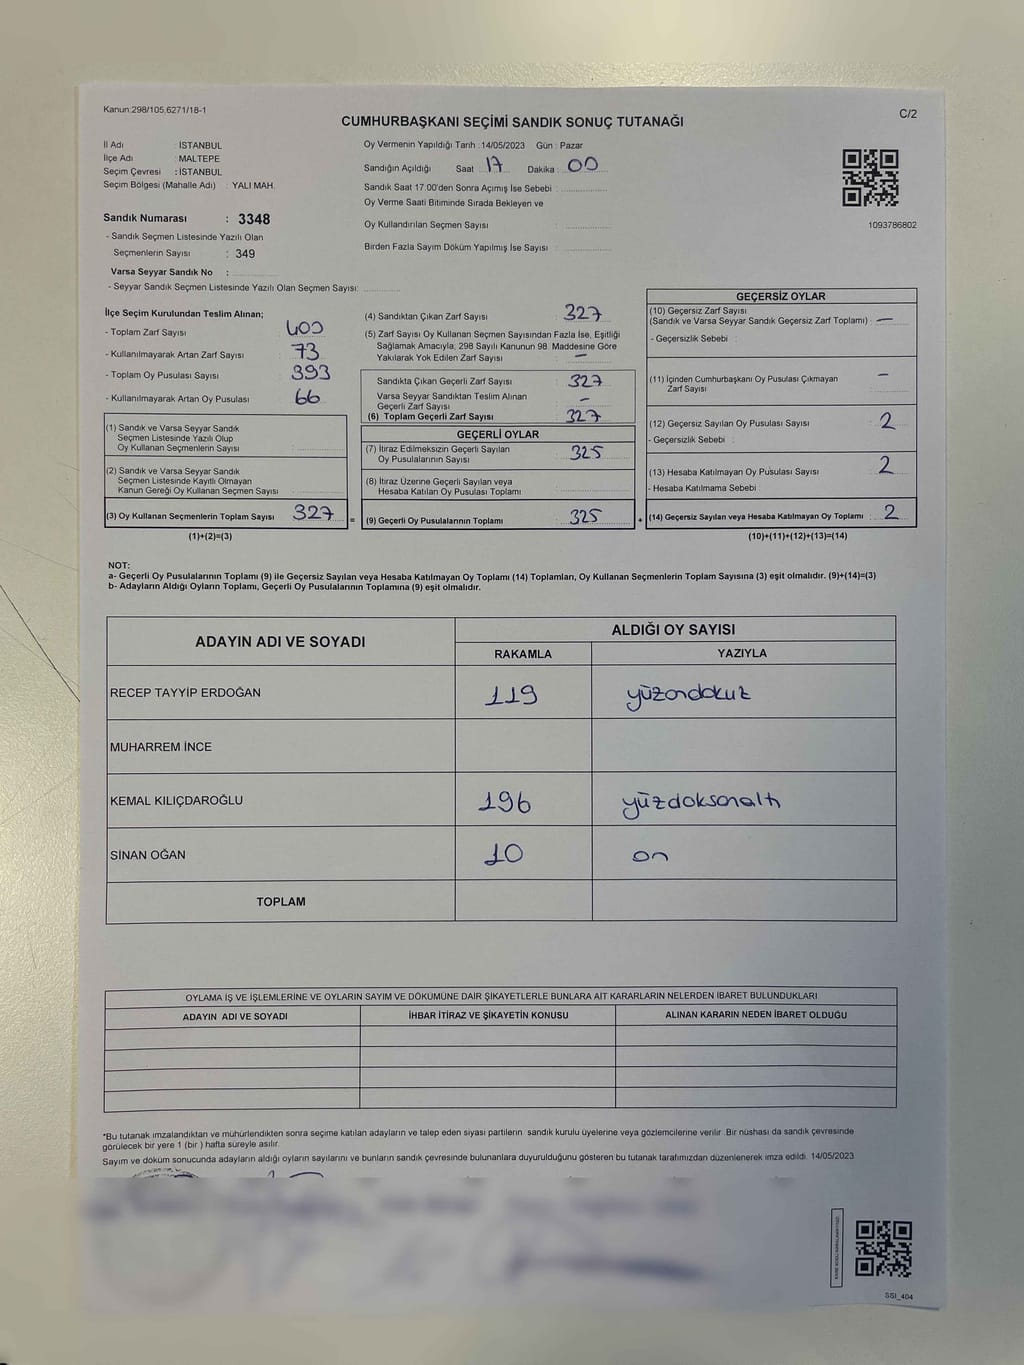 Kanun:298/105,6271/18-1
C/2
CUMHURBAŞKANI SEÇİMİ SANDIK SONUÇ TUTANAĞI
İl Adı : İSTANBUL
İlçe Adı : MALTEPE
Seçim Çevresi : İSTANBUL
Seçim Bölgesi (Mahalle Adı) : YALI MAH.
Sandık Numarası : 3348
- Sandık Seçmen Listesinde Yazılı Olan
Seçmenlerin Sayısı : 349
Varsa Seyyar Sandık No :
- Seyyar Sandık Seçmen Listesinde Yazılı Olan Seçmen Sayısı:
Oy Vermenin Yapıldığı Tarih :14/05/2023 Gün : Pazar
Sandığın Açıldığı Saat 17 Dakika : 00
Sandık Saat 17:00'den Sonra Açımış İse Sebebi :
Oy Verme Saati Bitiminde Sırada Bekleyen ve
Oy Kullandırılan Seçmen Sayısı :
Birden Fazla Sayım Döküm Yapılmış İse Sayısı :
1093786802
İlçe Seçim Kurulundan Teslim Alınan;
- Toplam Zarf Sayısı : 400
- Kullanılmayarak Artan Zarf Sayısı : 73
- Toplam Oy Pusulası Sayısı : 393
- Kullanılmayarak Artan Oy Pusulası : 66
(1) Sandık ve Varsa Seyyar Sandık
Seçmen Listesinde Yazılı Olup
Oy Kullanan Seçmenlerin Sayısı :
(2) Sandık ve Varsa Seyyar Sandık
Seçmen Listesinde Kayıtlı Olmayan
Kanun Gereği Oy Kullanan Seçmen Sayısı :
(3) Oy Kullanan Seçmenlerin Toplam Sayısı : 327
(1)+(2)=(3)
=
(4) Sandıktan Çıkan Zarf Sayısı : 327
(5) Zarf Sayısı Oy Kullanan Seçmen Sayısından Fazla İse, Eşitliği
Sağlamak Amacıyla, 298 Sayılı Kanunun 98. Maddesine Göre
Yakılarak Yok Edilen Zarf Sayısı : —
Sandıkta Çıkan Geçerli Zarf Sayısı : 327
Varsa Seyyar Sandıktan Teslim Alınan
Geçerli Zarf Sayısı : —
(6) Toplam Geçerli Zarf Sayısı : 327
GEÇERLİ OYLAR
(7) İtiraz Edilmeksizin Geçerli Sayılan
Oy Pusulalarının Sayısı : 325
(8) İtiraz Üzerine Geçerli Sayılan veya
Hesaba Katılan Oy Pusulası Toplamı :
(9) Geçerli Oy Pusulalarının Toplamı : 325
+
GEÇERSİZ OYLAR
(10) Geçersiz Zarf Sayısı
(Sandık ve Varsa Seyyar Sandık Geçersiz Zarf Toplamı) : —
- Geçersizlik Sebebi :
(11) İçinden Cumhurbaşkanı Oy Pusulası Çıkmayan
Zarf Sayısı : —
(12) Geçersiz Sayılan Oy Pusulası Sayısı : 2
- Geçersizlik Sebebi :
(13) Hesaba Katılmayan Oy Pusulası Sayısı : 2
- Hesaba Katılmama Sebebi :
(14) Geçersiz Sayılan veya Hesaba Katılmayan Oy Toplamı : 2
(10)+(11)+(12)+(13)=(14)
NOT:
a- Geçerli Oy Pusulalarının Toplamı (9) ile Geçersiz Sayılan veya Hesaba Katılmayan Oy Toplamı (14) Toplamları, Oy Kullanan Seçmenlerin Toplam Sayısına (3) eşit olmalıdır. (9)+(14)=(3)
b- Adayların Aldığı Oyların Toplamı, Geçerli Oy Pusulalarının Toplamına (9) eşit olmalıdır.
ADAYIN ADI VE SOYADI
ALDIĞI OY SAYISI
RAKAMLA YAZIYLA
RECEP TAYYİP ERDOĞAN 119 yüzondokuz
MUHARREM İNCE
KEMAL KILIÇDAROĞLU 196 yüzdoksanaltı
SİNAN OĞAN 10 on
TOPLAM
OYLAMA İŞ VE İŞLEMLERİNE VE OYLARIN SAYIM VE DÖKÜMÜNE DAİR ŞİKAYETLERLE BUNLARA AİT KARARLARIN NELERDEN İBARET BULUNDUKLARI
ADAYIN ADI VE SOYADI İHBAR İTİRAZ VE ŞİKAYETİN KONUSU ALINAN KARARIN NEDEN İBARET OLDUĞU
*Bu tutanak imzalandıktan ve mühürlendikten sonra seçime katılan adayların ve talep eden siyasi partilerin sandık kurulu üyelerine veya gözlemcilerine verilir. Bir nüshası da sandık çevresinde
görülecek bir yere 1 (bir ) hafta süreyle asılır.
Sayım ve döküm sonucunda adayların aldığı oyların sayılarını ve bunların sandık çevresinde bulunanlara duyurulduğunu gösteren bu tutanak tarafımızdan düzenlenerek imza edildi. 14/05/2023
SSI_404